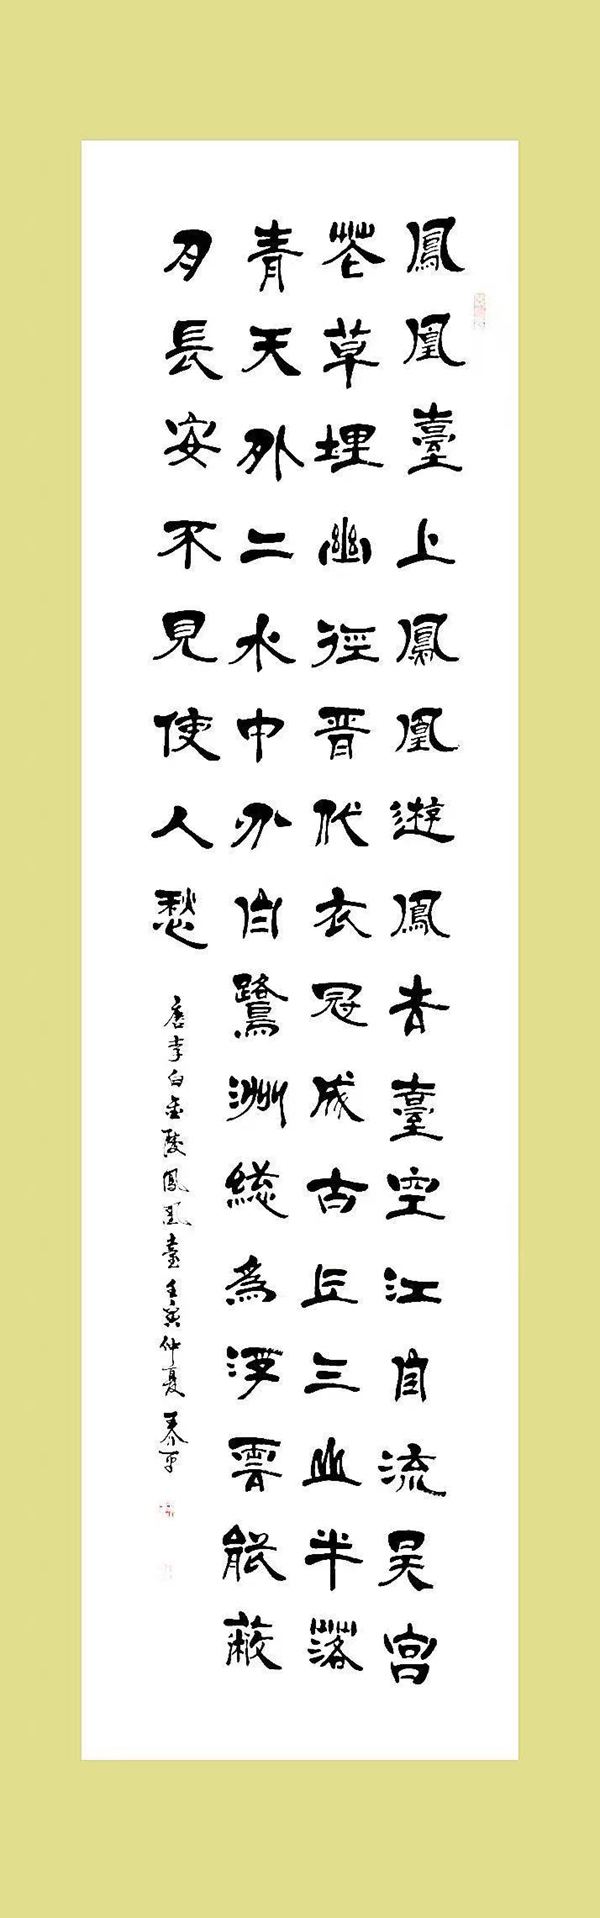 鳳凰臺上鳳凰遊鳳去臺空江自流吴宫
花草埋幽徑晋代衣冠成古丘三山半落
青天外二水中分白鷺洲総為浮雲能蔽
日長安不見使人愁
唐李白金陵鳳凰臺壬寅仲夏泰平